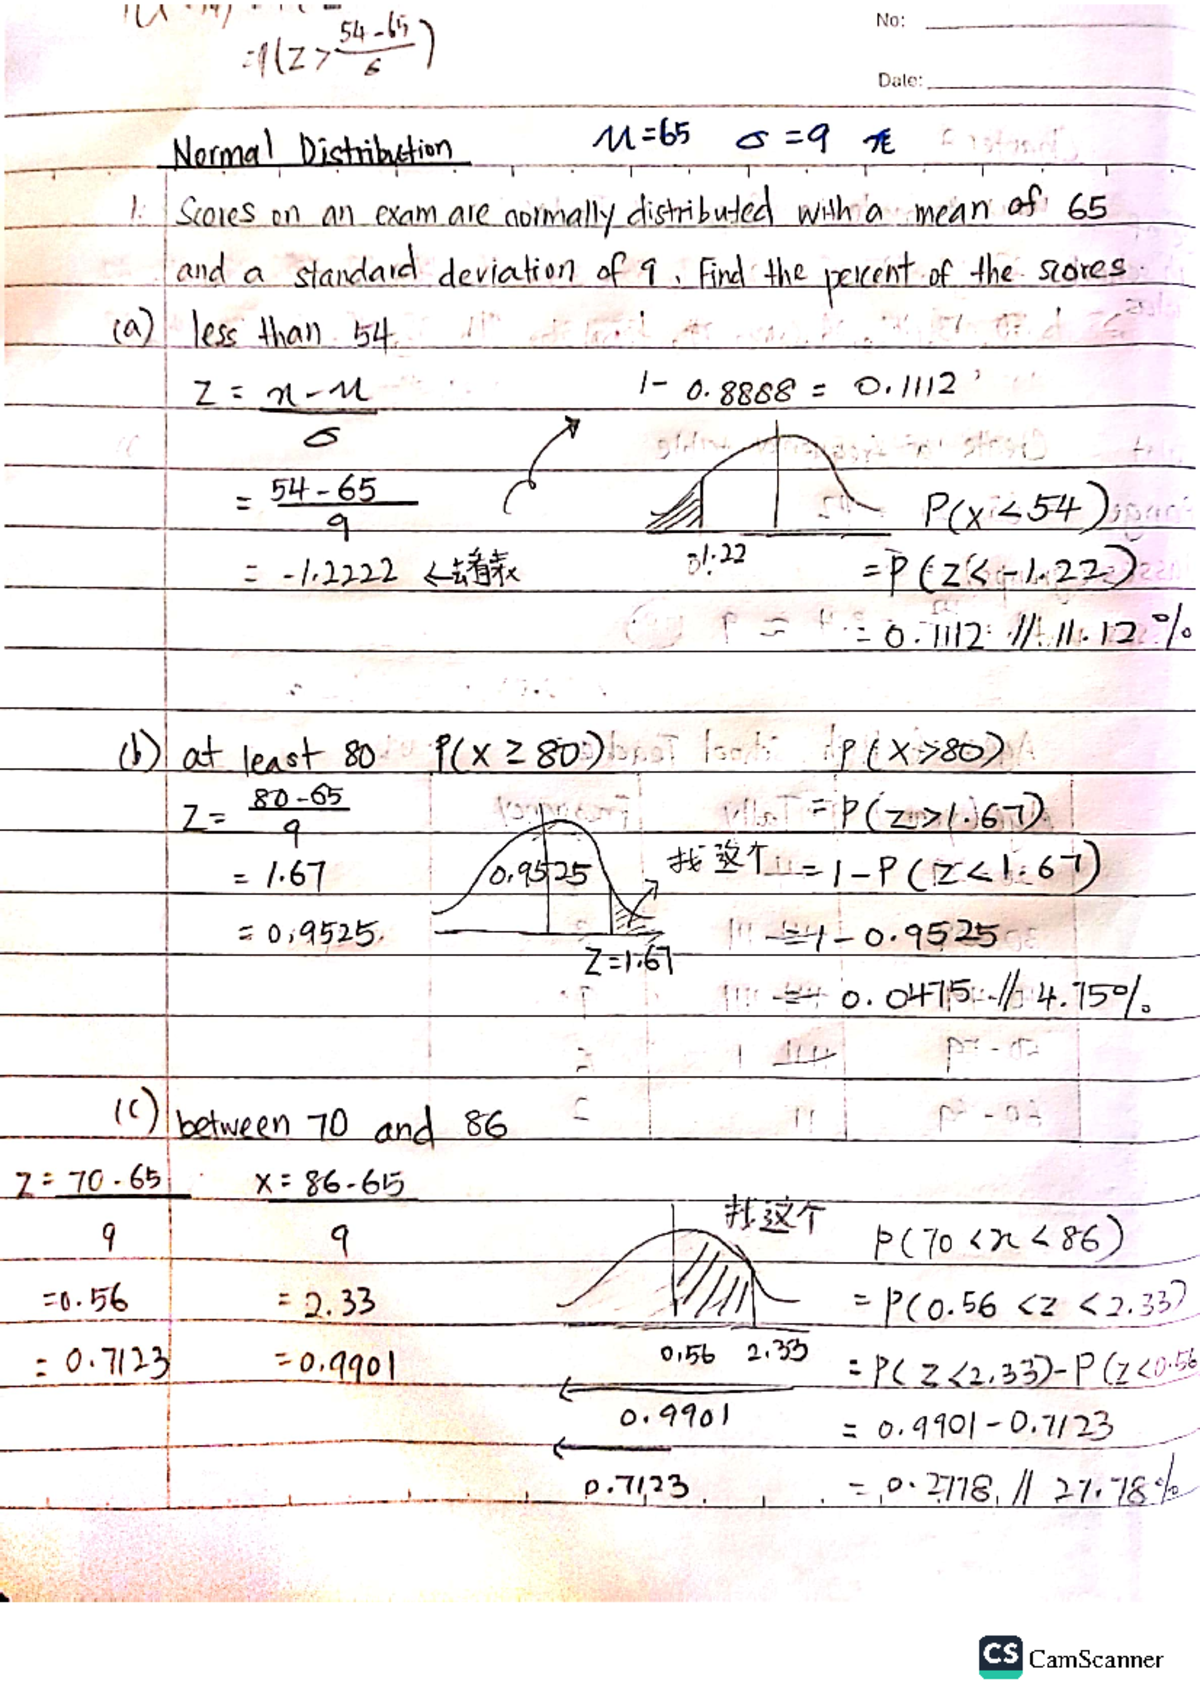 =P(Z > 54-65 / 6)
No:
Date:
Normal Distribution μ=65 σ=9
1. Scores on an exam are normally distributed with a mean of 65
and a standard deviation of 9. Find the percent of the scores
(a) less than 54
Z = x-μ / σ
1- 0.8888 = 0.1112
= 54-65 / 9
P(x<54)
= -1.2222 ←去看表
-1.22
=P(Z<-1.22)
=0.1112 // 11.12%
(b) at least 80 P(X≥80) P(X>80)
Z= 80-65 / 9
=P(Z>1.67)
= 1.67
0.9525
找这个
=1-P(Z<1.67)
= 0.9525
=1-0.9525
Z=1.67
= 0.0475 // 4.75%
(c) between 70 and 86
Z= 70-65 / 9
x= 86-65 / 9
找这个
P(70<x<86)
=0.56
= 2.33
= P(0.56 <z <2.33)
= 0.7123
=0.9901
0.56 2.33
=P(Z<2.33)-P(Z<0.56
0.9901
= 0.9901-0.7123
0.7123
= 0.2778 // 27.78%
CS CamScanner